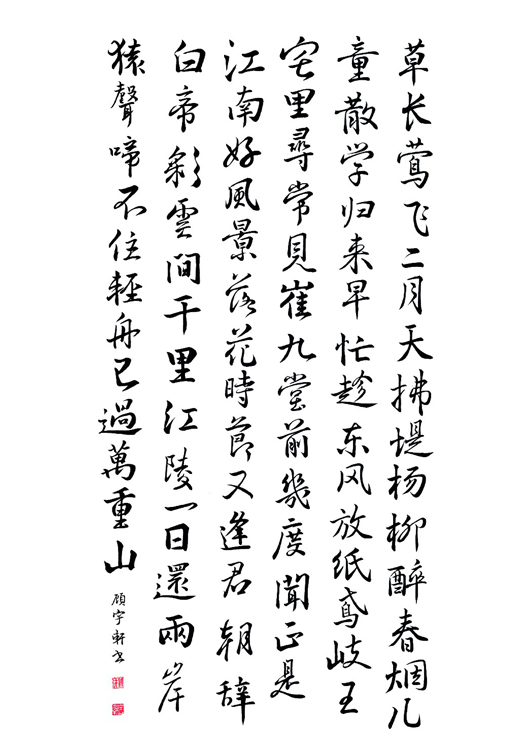 草长莺飞二月天拂堤杨柳醉春烟儿
童散学归来早忙趁东风放纸鸢岐王
宅里尋常見崔九堂前幾度聞正是
江南好風景落花時節又逢君朝辞
白帝彩雲間千里江陵一日還兩岸
猿聲啼不住輕舟已過萬重山
顾宇軒书